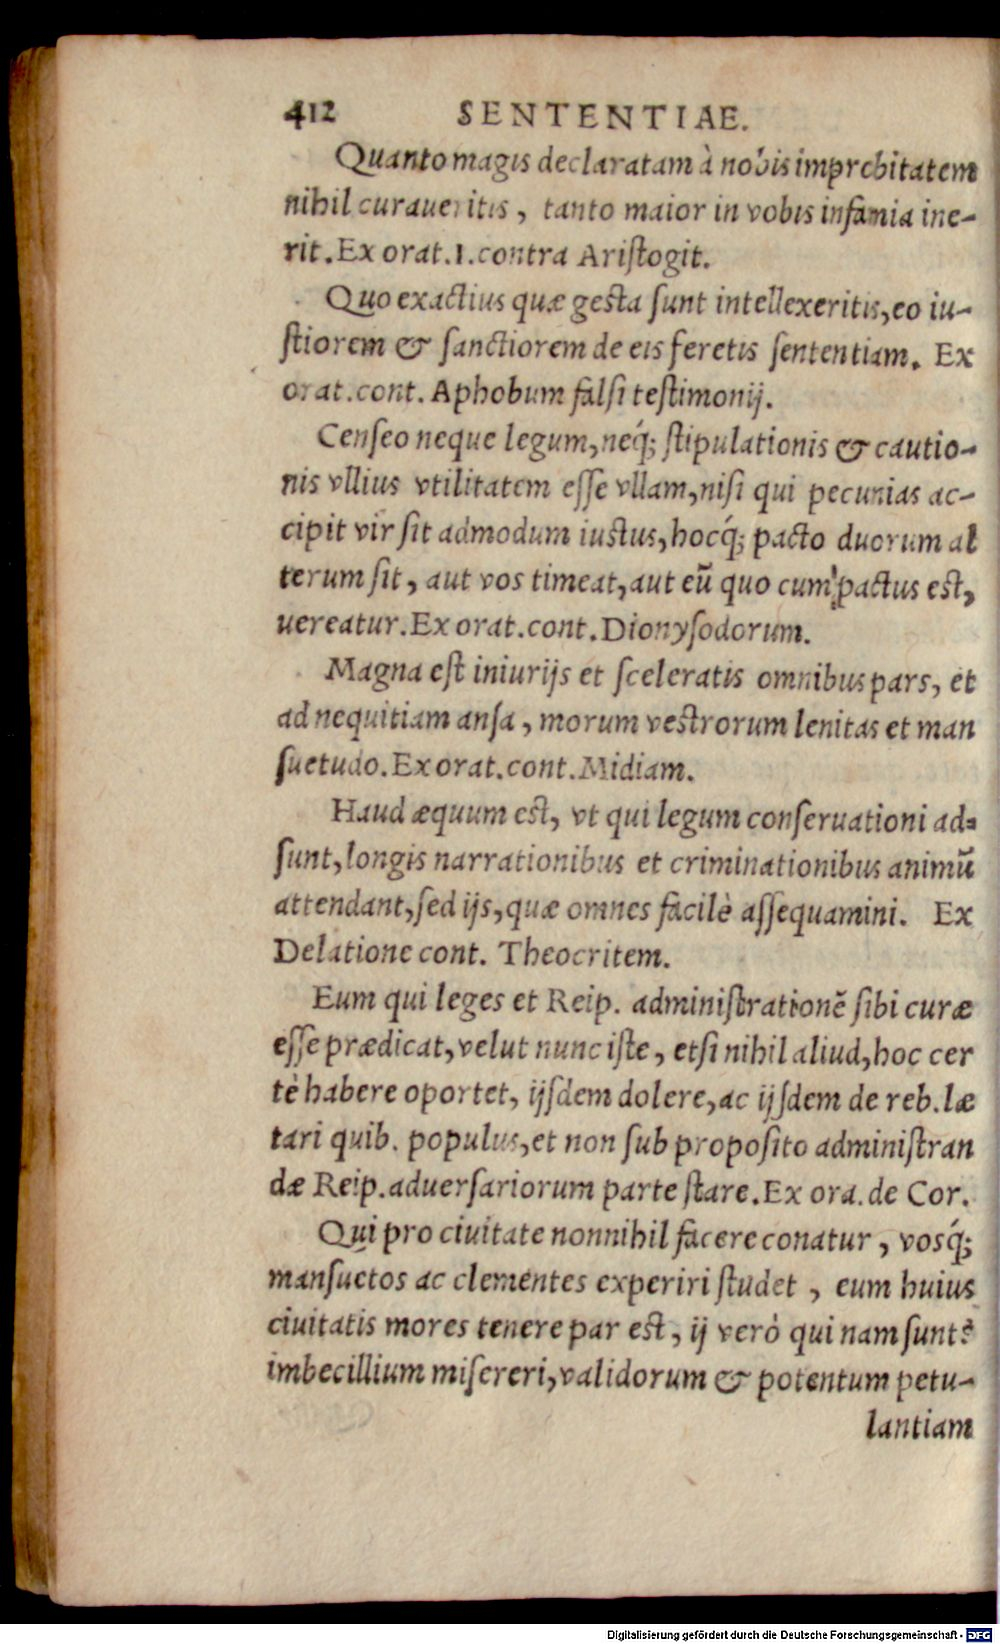 412 SENTENTIAE.
Quanto magis declaratam à nobis imprcbitatem
nihil curaueritis, tanto maior in vobis infamia ine-
rit. Ex orat. 1. contra Aristogit.
Quo exactius quæ gesta sunt intellexeritis, eo iu-
stiorem & sanctiorem de eis feretis sententiam. Ex
orat. cont. Aphobum falsi testimonij.
Censeo neque legum, neq́; stipulationis & cautio-
nis vllius vtilitatem esse vllam, nisi qui pecunias ac-
cipit vir sit admodum iustus, hocq́; pacto duorum al
terum sit, aut vos timeat, aut eū quo cum pactus est,
uereatur. Ex orat. cont. Dionysodorum.
Magna est iniurijs et sceleratis omnibus pars, et
ad nequitiam ansa, morum vestrorum lenitas et man
suetudo. Ex orat. cont. Midiam.
Haud æquum est, vt qui legum conseruationi ad-
sunt, longis narrationibus et criminationibus animū
attendant, sed ijs, quæ omnes facilè assequamini. Ex
Delatione cont. Theocritem.
Eum qui leges et Reip. administrationē sibi curæ
esse prædicat, velut nunc iste, etsi nihil aliud, hoc cer
tè habere oportet, ijsdem dolere, ac ijsdem de reb. læ
tari quib. populus, et non sub proposito administran
dæ Reip. aduersariorum parte stare. Ex ora. de Cor.
Qui pro ciuitate nonnihil facere conatur, vosq́;
mansuetos ac clementes experiri studet, eum huius
ciuitatis mores tenere par est, ij verò qui nam sunt?
imbecillium misereri, validorum & potentum petu-
lantiam
Digitalisierung gefördert durch die Deutsche Forschungsgemeinschaft - DFG